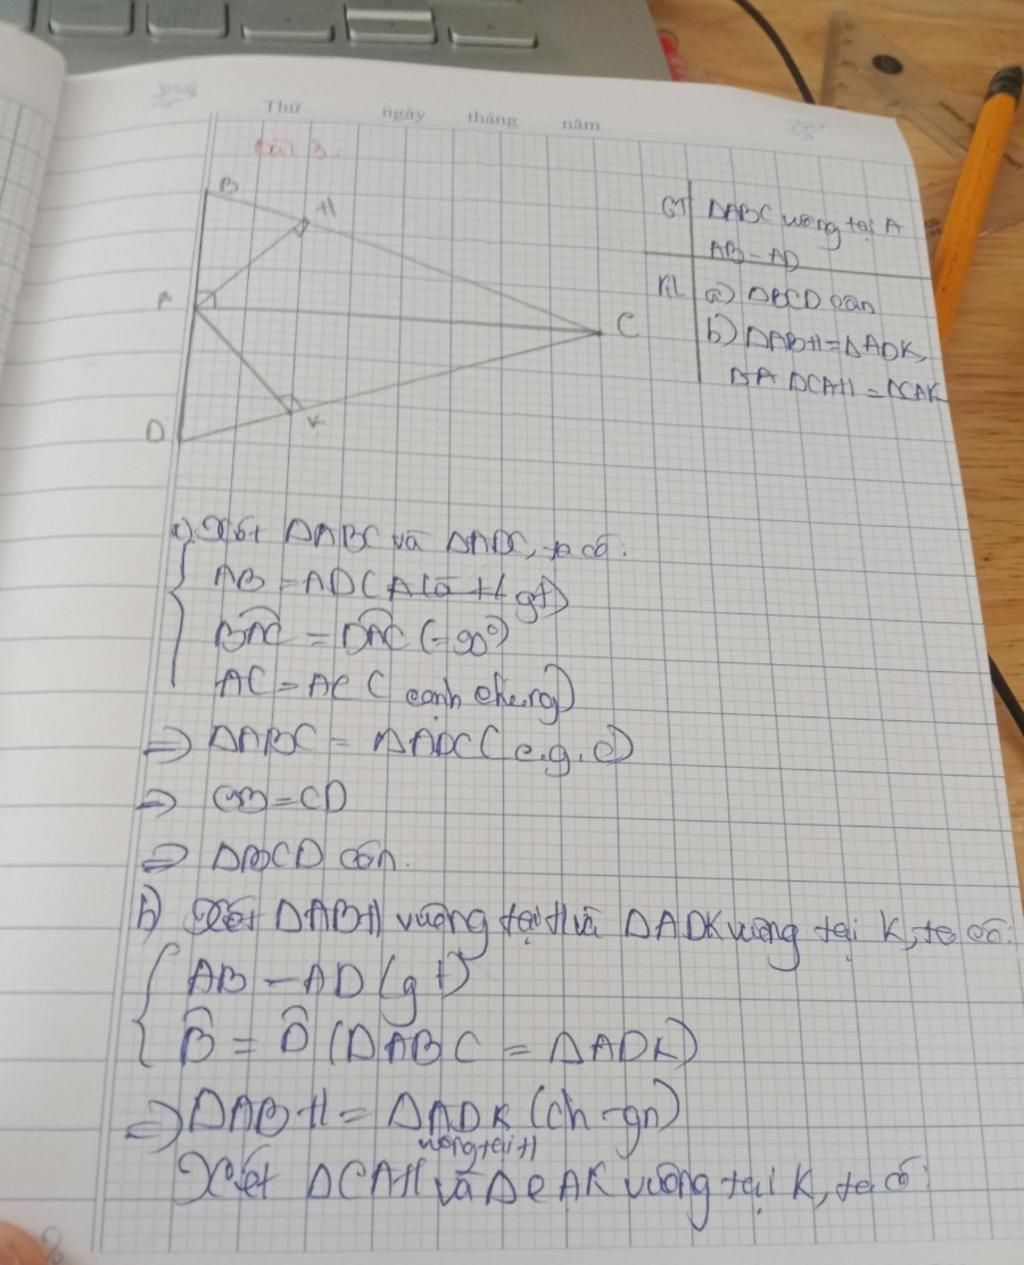 Thứ ngày tháng năm
Bài 3.
B
H
A
C
D
K
GT ΔABC vuông tại A
AB = AD
KL a) ΔBCD cân
b) ΔABH = ΔADK,
ΔCAH = ΔCAK
a) Xét ΔABC và ΔADC, ta có:
AB = AD (gt)
BAC = DAC (= 90°)
AC = AC (cạnh chung)
=> ΔABC = ΔADC (c.g.c)
=> CB = CD
=> ΔBCD cân.
b) Xét ΔABH vuông tại H và ΔADK vuông tại K, ta có:
AB = AD (gt)
B̂ = D̂ (ΔABC = ΔADK)
=> ΔABH = ΔADK (ch-gn)
vuông tại H
Xét ΔCAH và ΔCAK vuông tại K, ta có: